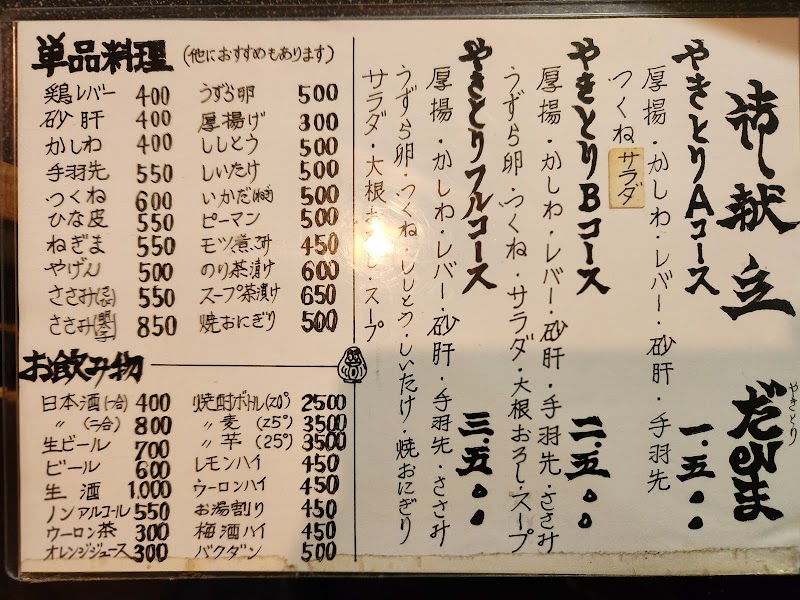 御献立
やきとり
だるま
やきとりAコース 一、五〇〇
厚揚・かしわ・レバー・砂肝・手羽先
つくね サラダ
やきとりBコース 二、五〇〇
厚揚・かしわ・レバー・砂肝・手羽先・ささみ
うずら卵・つくね・サラダ・大根おろし・スープ
やきとりフルコース 三、五〇〇
厚揚・かしわ・レバー・砂肝・手羽先・ささみ
うずら卵・つくね・ししとう・しいたけ・焼おにぎり
サラダ・大根おろし・スープ
単品料理 (他におすすめもあります)
鶏レバー 400
砂肝 400
かしわ 400
手羽先 550
つくね 600
ひな皮 550
ねぎま 550
やげん 500
ささみ 550
ささみ 850
うずら卵 500
厚揚げ 300
ししとう 500
しいたけ 500
いかだ(ねぎ) 500
ピーマン 500
モツ煮込み 450
のり茶漬け 600
スープ茶漬け 650
焼おにぎり 500
お飲み物
日本酒(一合) 400
〃 (二合) 800
生ビール 700
ビール 600
生酒 1,000
ノンアルコール 550
ウーロン茶 300
オレンジジュース 300
焼酎ボトル(20°) 2500
〃 麦 (25°) 3500
〃 芋 (25°) 3500
レモンハイ 450
ウーロンハイ 450
お湯割り 450
梅酒ハイ 450
バクダン 500